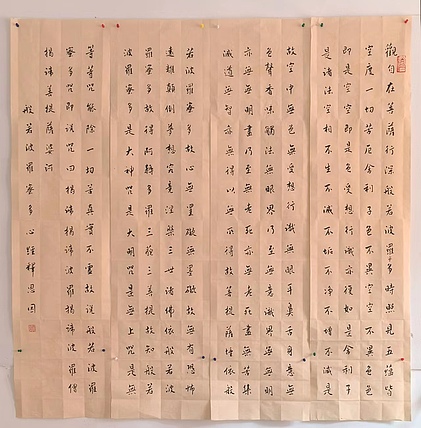 觀自在菩薩行深般若波羅多時照見五蘊皆
空度一切苦厄舍利子色不異空空不異色色
即是空空即是色受想行識亦復如是舍利子
是諸法空相不生不滅不垢不淨不增不減是
故空中無色無受想行識無眼耳鼻舌身意無
色聲香味觸法無眼界乃至無意識界無無明
亦無無明盡乃至無老死亦無老死盡無苦集
滅道無智亦無得以無所得故菩提薩埵依般
若波羅蜜多故心無罣礙無罣礙故無有恐怖
遠離顛倒夢想究竟涅槃三世諸佛依般若波
羅蜜多故得阿耨多羅三藐三菩提故知般若
波羅蜜多是大神咒是大明咒是無上咒是無
等等咒能除一切苦真實不虛故說般若波羅
蜜多咒即說咒曰揭諦揭諦波羅揭諦波羅僧
揭諦菩提薩婆訶
般若波羅蜜多心經釋思因